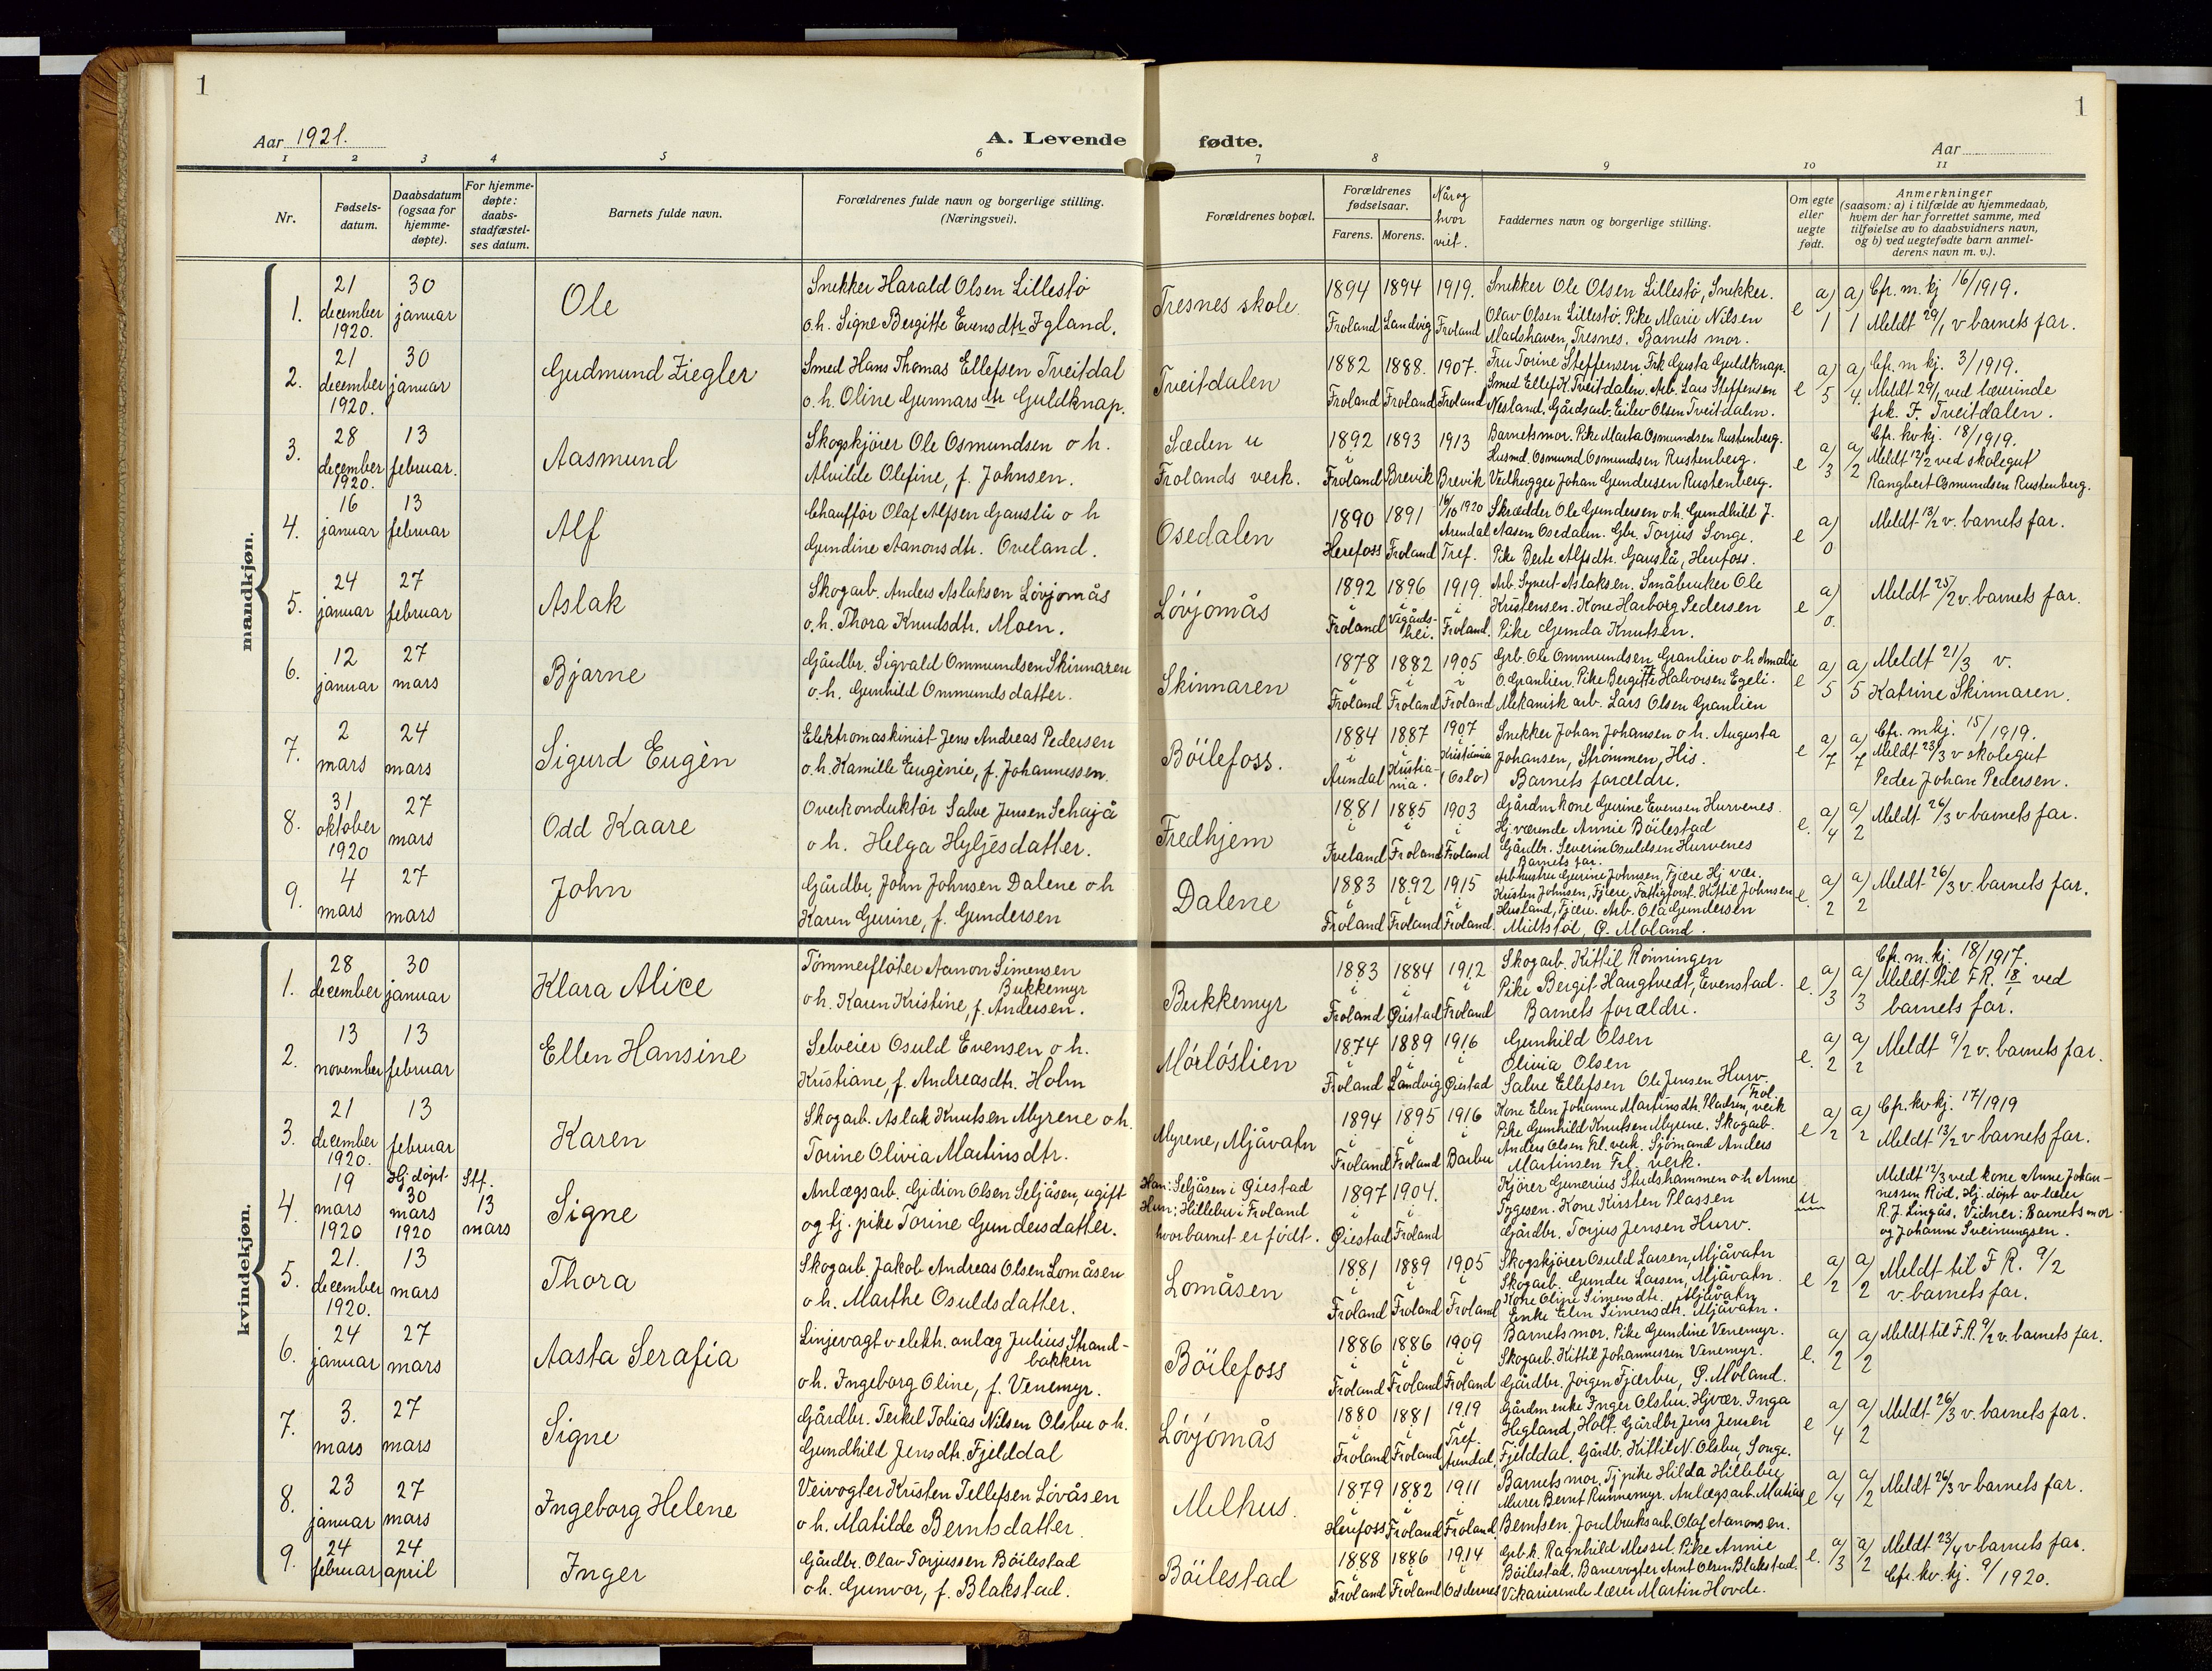 1
1
Aar 1921.
A. Levende
fødte.
Aar
1 2 3 4 5 6 7 8 9 10 11
Nr.
Fødsels-
datum.
Daabsdatum
(ogsaa for
hjemme-
døpte).
For hjemme-
døpte:
daabs-
stadfæstel-
ses datum.
Barnets fulde navn.
Forældrenes fulde navn og borgerlige stilling.
(Næringsvei).
Forældrenes bopæl.
Forældrenes
fødselsaar.
Farens. Morens.
Når og
hvor
viet.
Faddernes navn og borgerlige stilling.
Om egte
eller
uegte
født.
Anmerkninger
(saasom: a) i tilfælde av hjemmedaab,
hvem der har forrettet samme, med
tilføielse av to daabsvidners navn,
og b) ved uegtefødte barn anmel-
derens navn m. v.).
mandkjøn.
1.
21
december
1920.
30
januar
Ole
Snekker Harald Olsen Lillestø
o.h. Signe Bergitte Evensdtr Igland.
Tresnes skole
1894 1894 1919.
Froland Landvig Froland
Snekker Ole Olsen Lillestø, Snekker.
Olav Olsen Lillestø. Pike Marie Nilsen
Madshaven, Tresnes. Barnets mor.
e
a) a)
1 1
Cfr. m. kj 16/1919.
Meldt 29/1 v barnets far.
2.
21
december
1920.
30
januar
Gudmund Ziegler
Smed Hans Thomas Ellefsen Tveitdal
o. h. Oline Gunnarsdtr Guldknap.
Tveitdalen
1882 1888. 1907.
Froland Froland Froland
Fru Torine Steffensen. Frk Gusta Guldknap.
Smed Ellef K. Tveitdalen. Arb. Lars Steffensen
Nesland. Gårdsarb. Eilev Olsen Tveitdalen.
e
a) a)
5 4.
Cfr. m kj. 3/1919.
Meldt 29/1 ved lærerinde
frk. F. Tveitdalen.
3.
28
december
1920.
13
februar.
Aasmund
Skogskjører Ole Osmundsen o h.
Alvilde Olefine, f. Johnsen.
Sæden u
Frolands verk.
1892 1893 1913
i
Froland Brevik Brevik
Barnets mor. Pike Marta Osmundsen Rustenberg.
Husmd. Osmund Osmundsen Rustenberg.
Vedhugger Johan Gundersen Rustenberg.
e
a/ a/
3 2
Cfr. kv kj. 18/1919.
Meldt 12/2 ved skolegut
Rangbert Osmundsen Rustenberg.
4.
16
januar
13
februar
Alf
Chauffør Olaf Alfsen Gauslå o h
Gundine Aanonsdtr. Oveland.
Osedalen
1890 1891 16/10 1920
Arendal
Herefoss Froland Tref.
Skrædder Ole Gundersen o h. Gundhild J.
Aasen Osedalen. Gbr. Torjus Songe.
Pike Berte Alfsdtr. Gauslå, Herefoss.
e
a)
0
Meldt 13/2 v. barnets far.
5.
24
januar
27
februar
Aslak
Skogarb. Anders Aslaksen Løvjomås
o. h. Thora Knudsdtr. Moen.
Løvjomås
1892 1896 1919.
i i i
Froland Vegårds-
hei. Froland.
Arb. Synert Aslaksen. Småbruker Ole
Kristensen. Kone Harborg Pedersen
Pike Gunda Knutsen.
e
a)
0.
Meldt 25/2 v. barnets far.
6.
12
januar
27
mars
Bjarne
Gårdbr. Sigvald Ommundsen Skinnaren
o. h. Gunhild Ommundsdatter.
Skinnaren
1878 1882 1905
i i i
Froland Froland Froland
Grb. Ole Ommundsen Granlien o h Amalie
O. Granlien. Pike Bergitte Halvorsen Egeli.
Mekanisk arb. Lars Olsen Granlien
e
a) a)
5 5
Meldt 21/3 v.
Katrine Skinnaren.
7.
2
mars
24
mars
Sigurd Eugèn
Elektromaskinist Jens Andreas Pedersen
o. h. Kamille Eugènie, f. Johannessen.
Bøilefoss.
1884 1887 1907
i i i
Arendal Kristia-
nia. Kristiania
(Oslo)
Snekker Johan Johansen o h. Augusta
Johansen, Strømmen, His.
Barnets forældre.
e
a) a)
7 7
Cfr. m kj. 15/1919.
Meldt 23/3 v skolegut
Peder Johan Pedersen.
8.
31
oktober
1920
27
mars
Odd Kaare
Overkonduktør Salve Jensen Schajå
o h. Helga Hyljesdatter.
Fredhjem
1881 1885 1903
i i i
Iveland Froland Froland
Gårdm kone Gurine Evensen Hurvenes.
Hj. værende Annie Bøilestad
Gårdbr. Severin Osuldsen Hurvenes
Barnets far.
e.
a/ a/
4 2
Meldt 26/3 v barnets far.
9.
4
mars
27
mars
John
Gårdbr. John Johnsen Dalene o h
Karen Gurine, f. Gundersen
Dalene
1883 1892 1915
i i i
Froland Froland Froland.
Arb hustru Gurine Johnsen, Fjære Hj. vær.
Kristen Johnsen, Fjære. Fattigforst. Kittil Johnsen
Husland, Fjære. Arb. Ola Gundersen
Midtstøl, Ø. Moland.
e.
a) a)
2 2
Meldt 26/3 v. barnets far.
kvindekjøn.
1.
28
december
30
januar
Klara Alice
Tømmerfløter Aanon Simensen
Bukkemyr
o h. Karen Kristine, f. Andersen.
Bukkemyr
1883 1884 1912
i i i
Froland Øiestad Froland
Skogarb. Kittil Rønningen
Pike Bergit Haugtvedt, Evenstad.
Barnets forældre.
e.
a) a)
3 3
Cfr. m. kj. 18/1917.
Meldt til F R. 18/1 ved
barnets far.
2.
13
november
13
februar
Ellen Hansine
Selveier Osuld Evensen o h.
Kristiane, f. Andreasdtr. Holm
Mørløslien
1874 1889 1916
i i i
Froland Landvig Øiestad
Gunhild Olsen
Olivia Olsen
Salve Ellefsen Ole Jensen Hurv.
e.
a) a)
2 2
Meldt 9/2 v. barnets far.
3.
21
december
1920.
13
februar
Karen
Skogarb. Aslak Knutsen Myrene o h.
Torine Olivia Martinsdtr.
Myrene, Mjåvatn
1894 1895 1916
i i i
Froland Froland Barbu
(Frol.
Kone Elen Johanne Martinsdtr. Pladsen, verk
Pike Gunhild Knutsen Myrene. Skogarb.
Anders Olsen Frl. verk. Sjømand Anders
Martinsen Frl. verk.
e
a) a)
2 2
Cfr. kv kj. 17/1919
Meldt 13/2 v barnets far.
4.
19
mars
1920
Hj døpt
30
mars
1920
Stf.
13
mars
Signe
Anlægsarb. Gidion Olsen Seljåsen, ugift
og tj. pike Torine Gundersdatter.
Han: Seljåsen i Øiestad
Hun: Hillebu i Froland
hvor barnet er født.
1897 1904.
i i
Øiestad Froland
Kjører Gunerius Studshammen o h Anne
Tygesen. Kone Kirsten Plassen
Gårdbr. Torjus Jensen Hurv.
u
Meldt 12/3 ved kone Anne Johan-
nessen Rød. Hj. døpt av lærer
R. J. Lingås. Vidner: Barnets mor
og Johanne Sveinungsen.
5.
21.
december
1920.
13
mars
Thora
Skogarb. Jakob Andreas Olsen Lomåsen
o h. Marthe Osuldsdatter.
Lomåsen
1881 1889 1905
i i i
Froland Froland Froland
Skogskjører Osuld Larsen, Mjåvatn
Skogarb. Gunder Larsen, Mjåvatn.
Kone Oline Simensdtr. Mjåvatn
Enke Elen Simensdtr. Mjåvatn.
e
a/ a/
2 2
Meldt til F R. 9/2
v. barnets far.
6.
24
januar
27
mars
Aasta Serafia
Linjevagt v elektr. anlæg Julius Strand-
bakken
o h. Ingeborg Oline, f. Venemyr.
Bøilefoss
1886 1886 1909
i i i
Froland Froland Froland
Barnets mor. Pike Gundine Venemyr.
Skogarb. Kittil Johannessen Venemyr.
Gårdbr. Jørgen Fjærbu, Ø. Moland.
e.
a/ a/
2 2
Meldt til F.R. 9/2 v. barnets far.
7.
3.
mars
27
mars
Signe
Gårdbr. Terkel Tobias Nilsen Olsbu o h.
Gundhild Jensdtr. Fjelddal
Løvjomås
1880 1881 1919
i i i
Froland Froland Tref.
Arendal.
Gårdm enke Inger Olsbu. Hj vær. Inga
Hegland, Holt. Gårdbr Jens Jensen
Fjelddal. Gårdb. Kittil N. Olsbu, Songe.
e
a/ a/
4 2
Meldt 26/3 v. barnets far.
8.
23
januar
27
mars
Ingeborg Helene
Veivogter Kristen Tellefsen Løvåsen
o h. Matilde Berntsdatter.
Melhus.
1879 1882 1911
i i i
Herefoss Froland Froland.
Barnets mor. Tj pike Hilda Hillebu
Murer Bernt Runnemyr. Anlægsarb. Matias
Berntsen. Jordbruksarb. Olaf Aanonsen.
e
a/ a/
4 2
Meldt 26/3 v barnets far.
9.
24
februar
24
april
Inger
Gårdbr. Olav Torjussen Bøilestad
o h. Gunvor, f. Blakstad.
Bøilestad
1888 1886 1914
i i i
Froland Froland Oddernes
Grb. k. Ragnhild Messel. Pike Annie
Bøilestad. Banevogter Arnt Olsen Blakstad.
Vikarierende lærer Martin Hovde.
e.
a/ a/
3 2
Meldt 23/4 v barnets far.
Cfr. kv. kj. 9/1920.